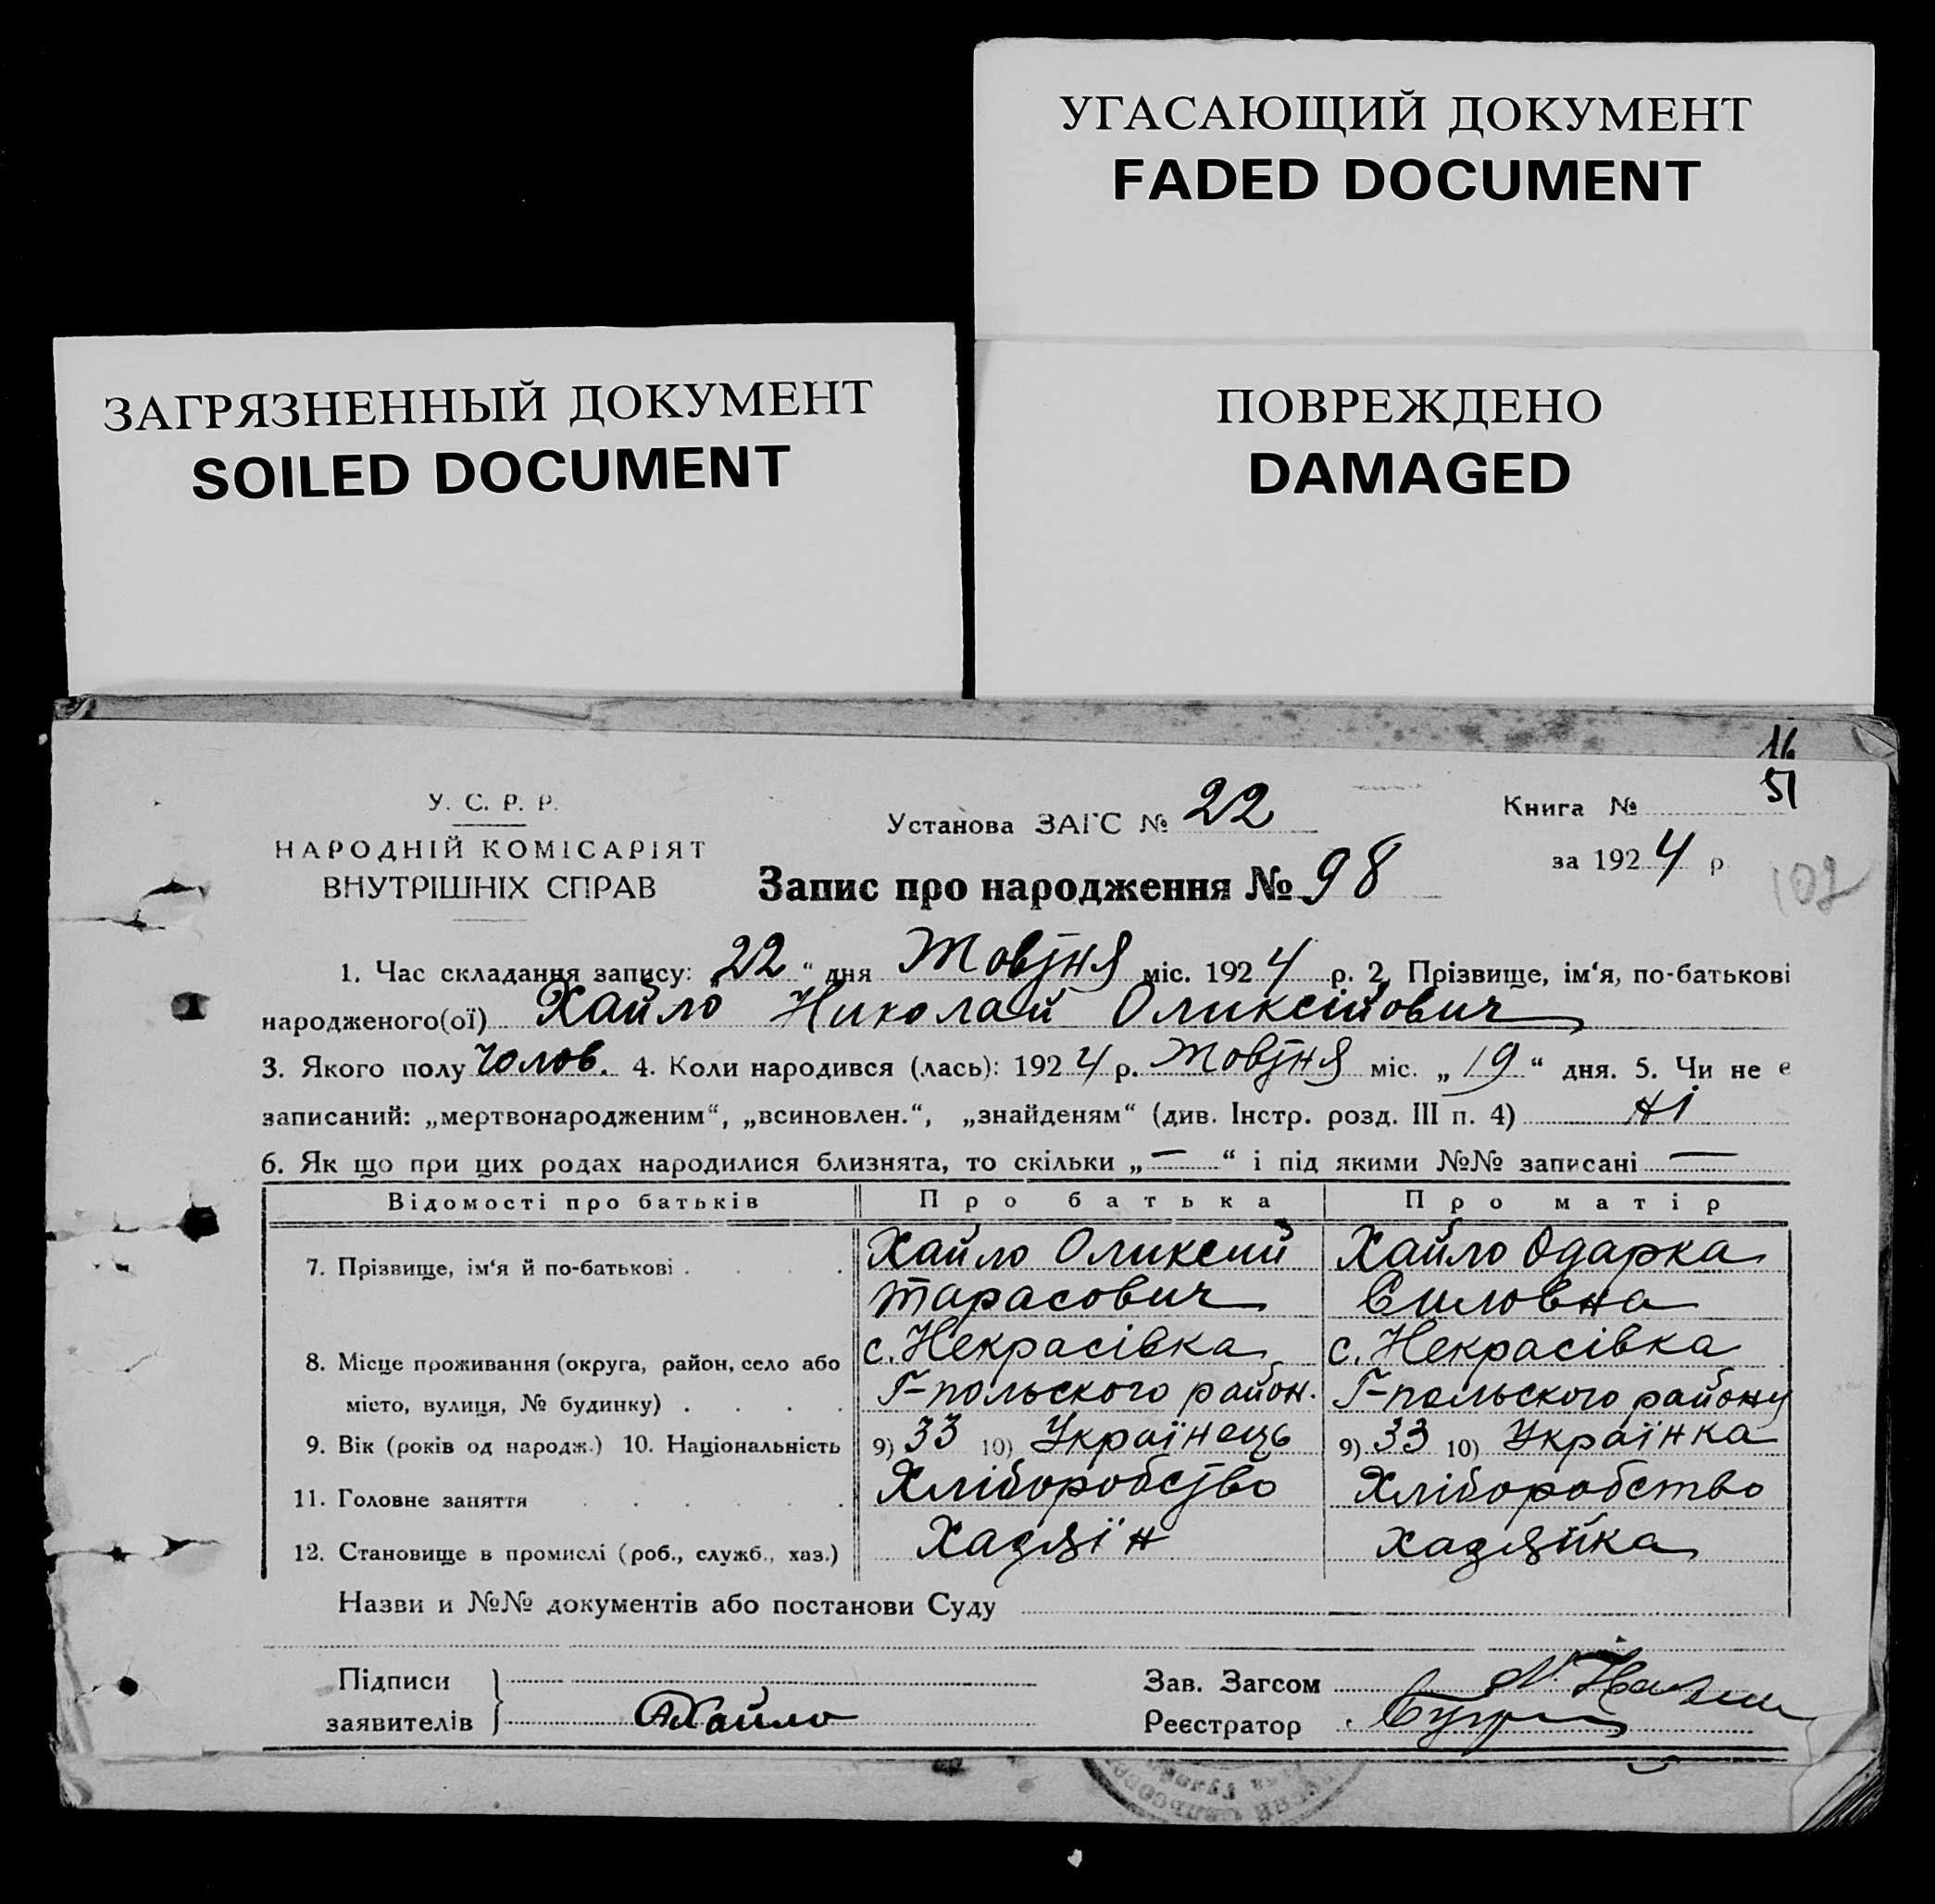 УГАСАЮЩИЙ ДОКУМЕНТ
FADED DOCUMENT
ЗАГРЯЗНЕННЫЙ ДОКУМЕНТ
SOILED DOCUMENT
ПОВРЕЖДЕНО
DAMAGED
16
51
У. С. Р. Р.
НАРОДНІЙ КОМІСАРІЯТ
ВНУТРІШНІХ СПРАВ
Установа ЗАГС № 22
Книга №
за 1924 р
102
Запис про народження № 98
1. Час складання запису: 22 “ дня Жовтня міс. 1924 р. 2. Прізвище, ім‘я, по-батькові
народженого(ої) Хайло Николай Оликсійович
3. Якого полу чолов. 4. Коли народився (лась): 1924 р. Жовтня міс. „19“ дня. 5. Чи не є
записаний: „мертвонародженим“, „всиновлен.“, „знайденям“ (див. Інстр. розд. III п. 4) ні
6. Як що при цих родах народилися близнята, то скільки „—“ і під якими №№ записані —
Відомості про батьків Про батька Про матір
7. Прізвище, ім‘я й по-батькові . . . . Хайло Оликсий Хайло Одарка
Тарасович Силовна
8. Місце проживання (округа, район, село або с. Некрасівка с. Некрасівка
місто, вулиця, № будинку) . . . . Г-польского район. Г-польского району
9. Вік (років од народж.) 10. Національність 9) 33 10) Українець 9) 33 10) Українка
11. Головне заняття . . . . . . Хліборобство Хліборобство
12. Становище в промислі (роб., служб., хаз.) Хадзяїн хадзяйка
Назви и №№ документів або постанови Суду
Підписи
заявителів
АХайло
Зав. Загсом
Реєстратор